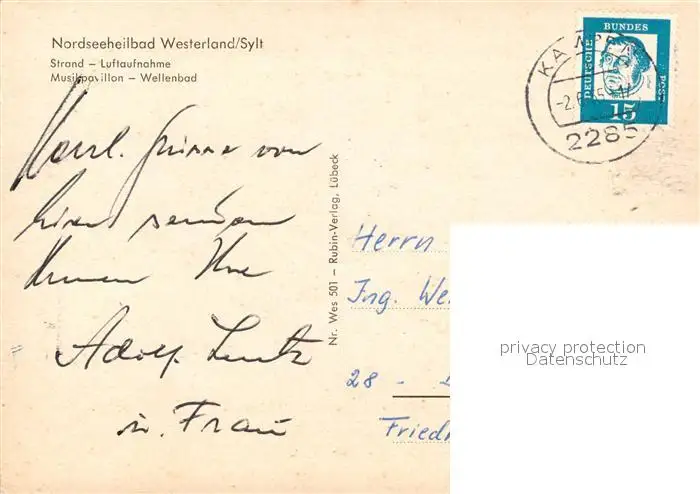 Nordseeheilbad Westerland/Sylt
Strand – Luftaufnahme
Musikpavillon – Wellenbad
Herzl. Grüsse von
hier senden
Ihnen Ihre
Adolf Lentz
u. Frau
Nr. Wes 501 – Rubin-Verlag, Lübeck
DEUTSCHE
BUNDES
POST
15
KAMPEN
2285
Herrn
Ing. We
28 -
Friedr
privacy protection
Datenschutz